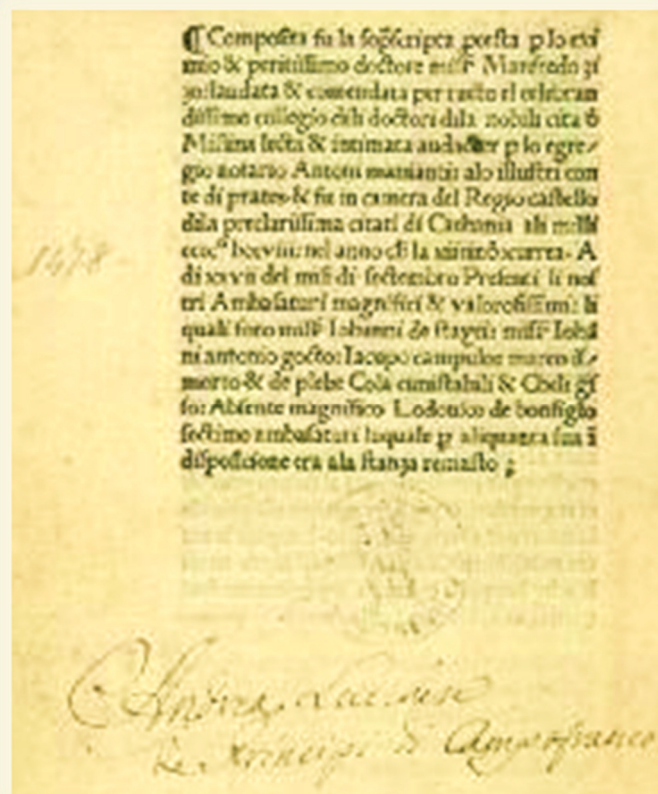 ¶ Compoſita fu la ſop̃ſcripta poeſia p lo exi
mio & peritiſſimo doctore miſſ̃ Manfredo
laudata & comendata per tucto el celebran
diſſimo collegio dili doctori dila nobili cita
Miſſina lecta & intimata p lo egre/
gio notario Antoni maniantis alo illuſtri con
te di prates & fu in camera del Reggio caſtello
dila preclariſſima citati di Cathania ali milli
lxxviii: nel anno A
di xxvii del miſi di ſectembro Preſenti li noſ
tri Ambaſaturi magnifici & valoroſiſſimi: li
quali foro miſſ̃ Iohanni de ſtaytis miſſ̃ Iohā
ni antonio gocto: Iacopo campulos marco
morto & de plebe Cola & Cheli
ſo: Abſente magnifico Lodouico de bonfiglo
ſectimo ambaſaturi loquale p aliquanta ſua ī
diſpoſicione era ala ſtanza remaſto ;
1478
Andrea
Principi di Campofranco